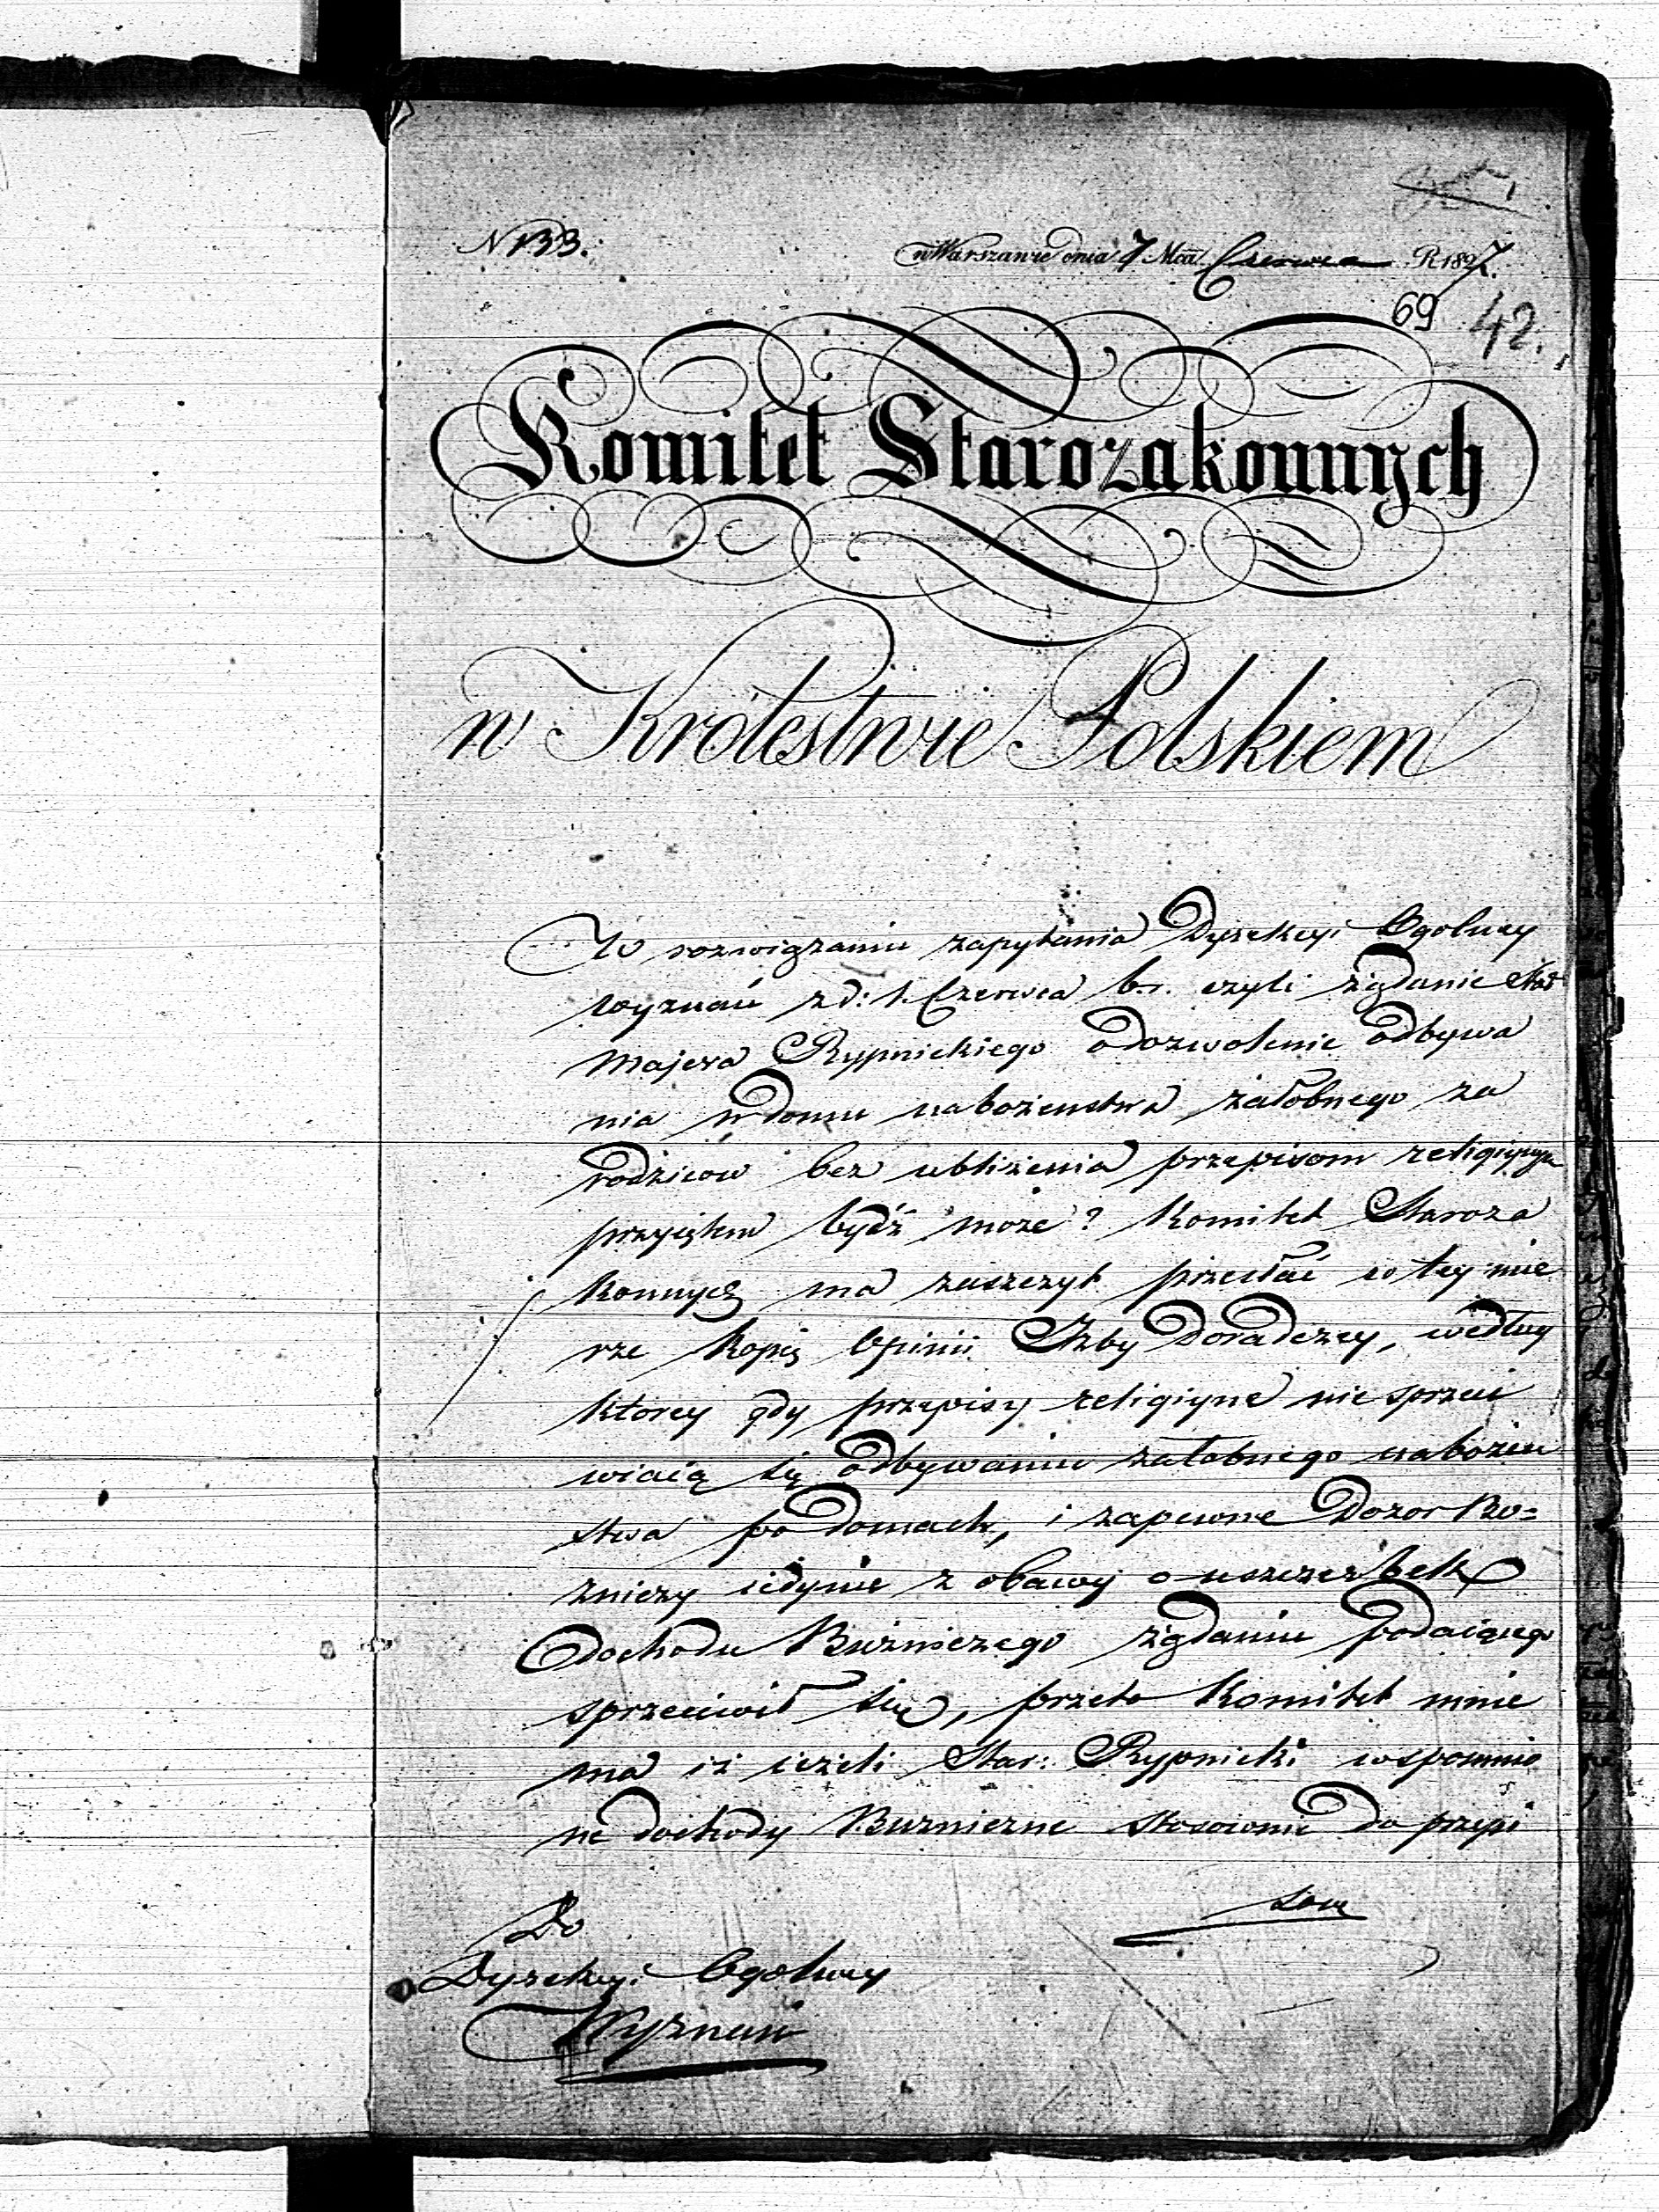 N 133.
w Warszawie dnia 7 Mca Czerwca R 1827.
69 42.
Komitet Starozakonnych
w Królestwie Polskiem
W rozwiązaniu zapytania Dyrekcyi Ogolney
Wyznań z d: 1. Czerwca b.r. czyli żądanie Star
Majera Rypnickiego o dozwolenie odbywa
nia w domu nabożeństwa żałobnego za
rodziców bez ubliżenia przepisom religiynym
przyiętem bydź może? Komitet Staroza
konnych ma zaszczyt przesłać w tey mie
rze kopię Opinii Izby Doradczey, według
ktorey gdy przepisy religiyne nie sprzeci
wiaią się odbywaniu załobnego nabożeń
stwa po domach, i zapewne Dozor Bo=
zniczy iedynie z obawy o uszczerbek
dochodu Bużniczego żądaniu podaiącego
sprzeciwił się, przeto Komitet mnie
ma iż ieżeli Star: Rypnicki wspomnio
ne dochody Buzniczne stosownie do przepi
sow
Do
Dyrekcyi Ogolney
Wyznań